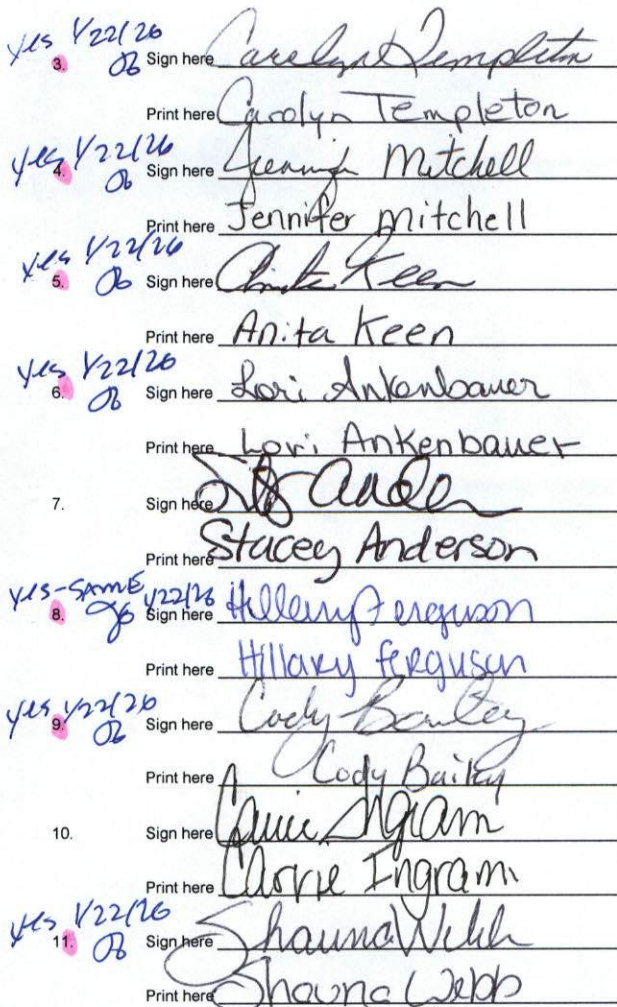 yes 1/22/26
3. Sign here Carolyn Templeton
Print here Carolyn Templeton
yes 1/22/26
4. Sign here Jennifer Mitchell
Print here Jennifer mitchell
yes 1/22/26
5. Sign here Anita Keen
Print here Anita Keen
yes 1/22/26
6. Sign here Lori Ankenbauer
Print here Lori Ankenbauer
7. Sign here
Print here Stacey Anderson
yes-SAME 1/22/26
8. Sign here Hillary Ferguson
Print here Hillary ferguson
yes 1/22/26
9. Sign here Cody Bailey
Print here Cody Bailey
10. Sign here Carrie Ingram
Print here Carrie Ingram
yes 1/22/26
11. Sign here Shauna Webb
Print here Shauna Webb